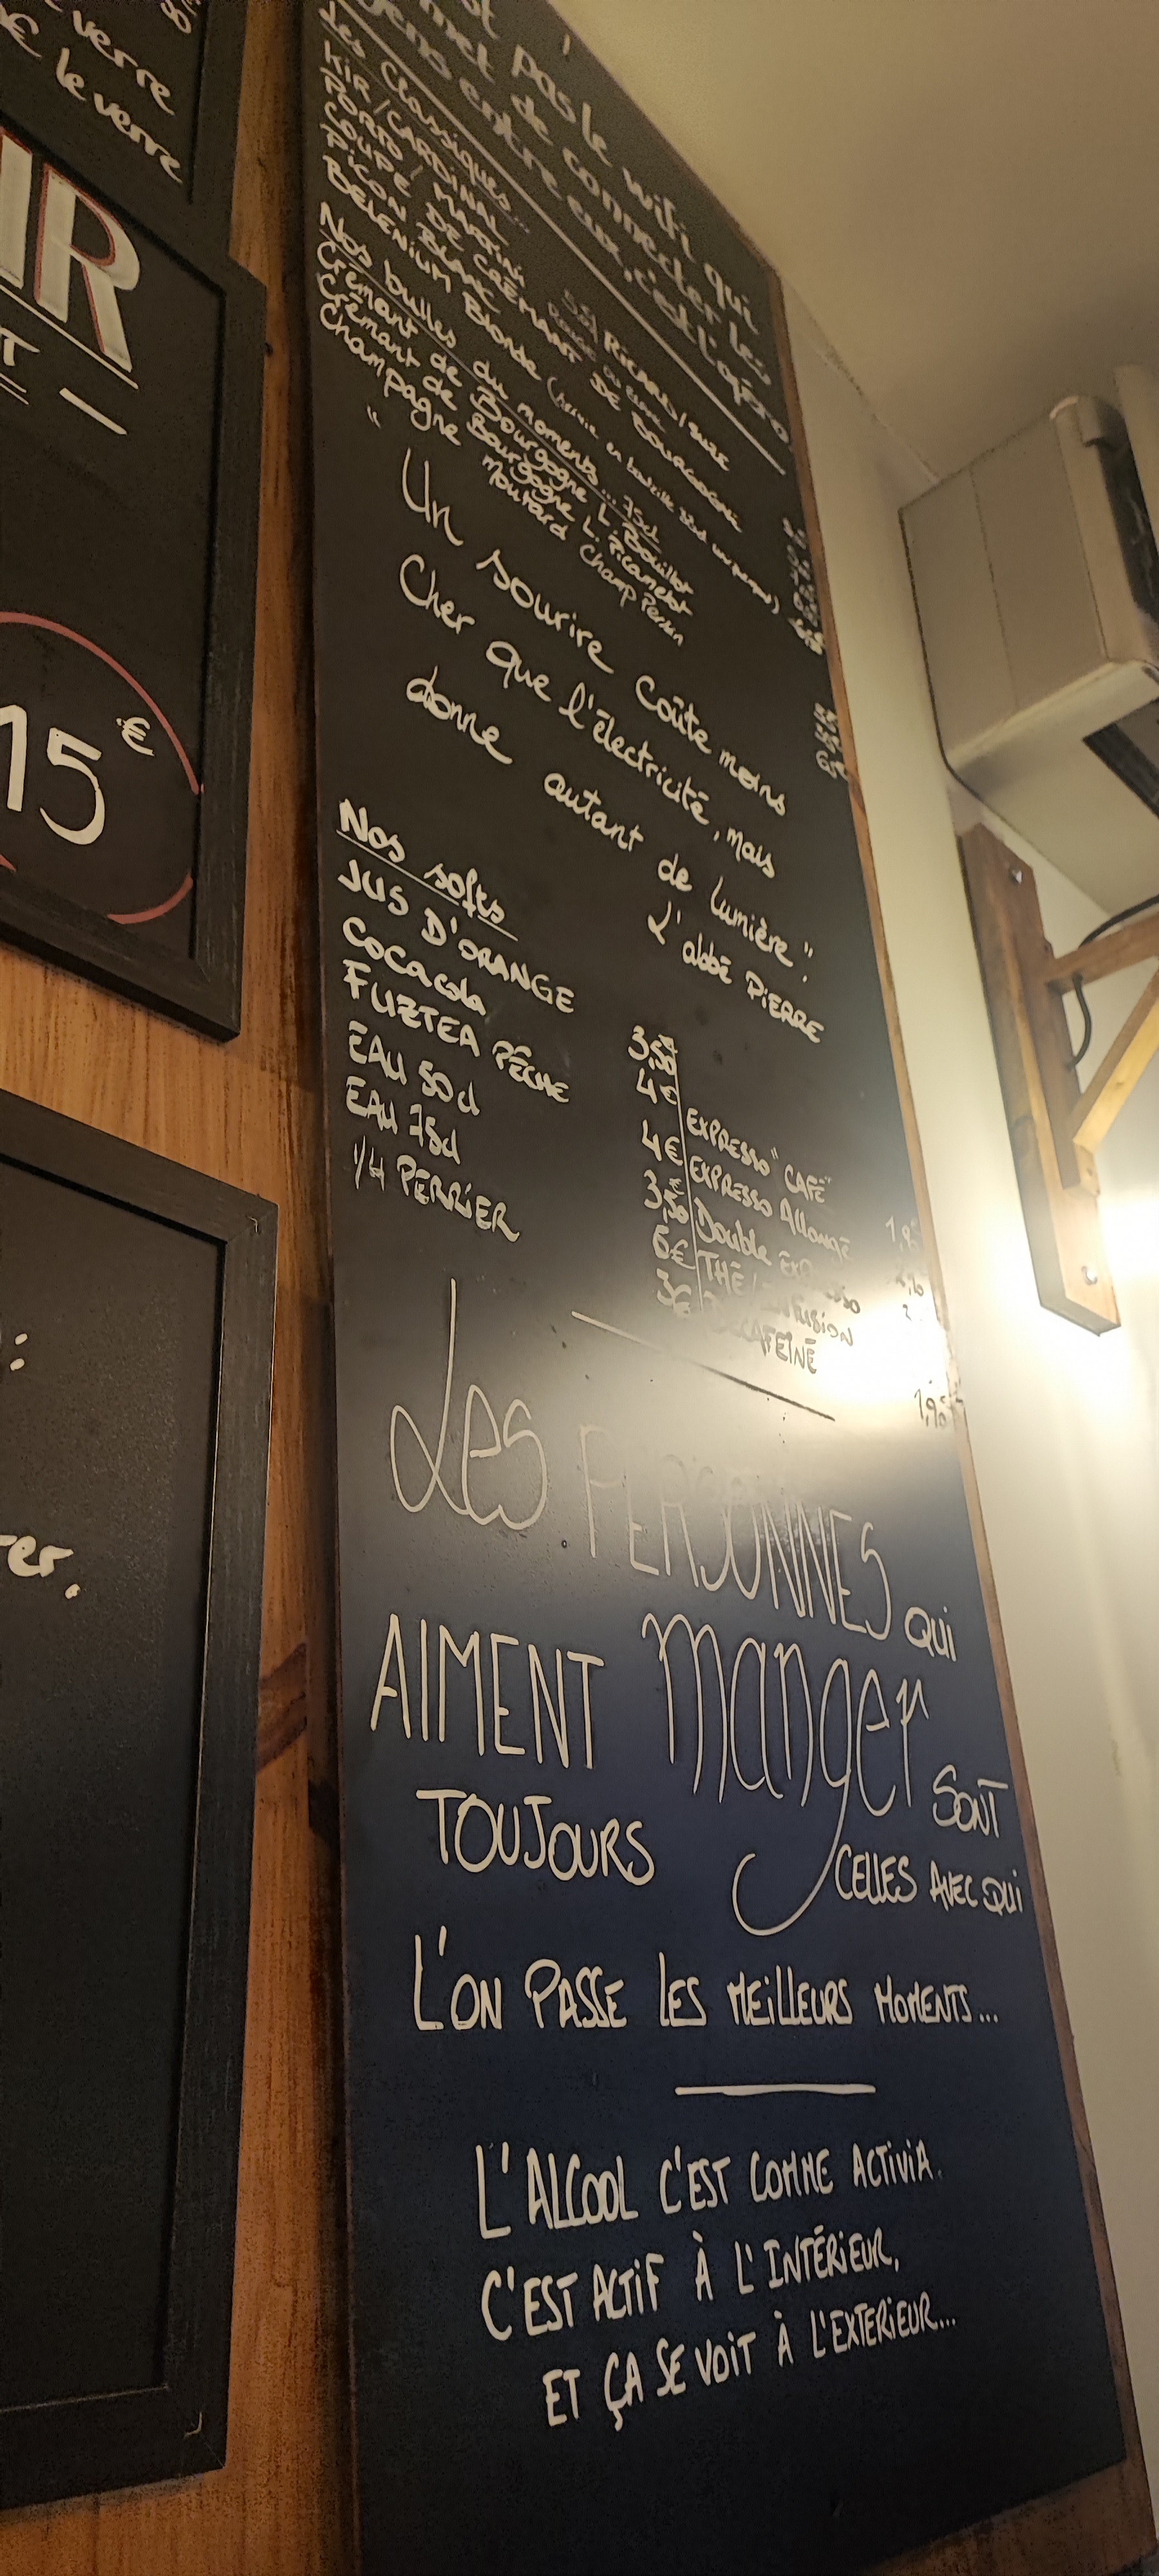 verre
€ le verre
IR
T —
15 €
:
rer.
pas le wifi qui
permet de connecter les
gens entre eux, c'est l'apéro
Les Classiques...
KIR/CARDINAL
PORTO / MARTINI
RICARD/SUZE
COUPE DE CRÉMANT DE BOURGOGNE
PICON BLANC
BELENIUM Blonde
Nos bulles du moments... 75cl
Crémant de Bourgogne L. Bouillot
Crémant de Bourgogne L. Picamelot
Champagne Moutard Champ Persin
65€
" Un sourire coûte moins
Cher que l'électricité, mais
donne autant de lumière."
L'abbé PIERRE
Nos softs
JUS D'ORANGE 3,50
COCA cola 4€
FUZTEA PÊCHE 4€
EAU 50cl 3,50
EAU 75cl 6€
1/4 PERRIER 3€
EXPRESSO "CAFÉ"
EXPRESSO Allongé
Double EXPRESSO
THÉ/INFUSION
DÉCAFÉINÉ 1,90
Les PERSONNES QUI
AIMENT manger SONT
TOUJOURS CELLES AVEC QUI
L'ON PASSE LES MEILLEURS MOMENTS...
L'ALCOOL C'EST COMME ACTIVIA.
C'EST ACTIF À L'INTÉRIEUR,
ET ÇA SE VOIT À L'EXTERIEUR...